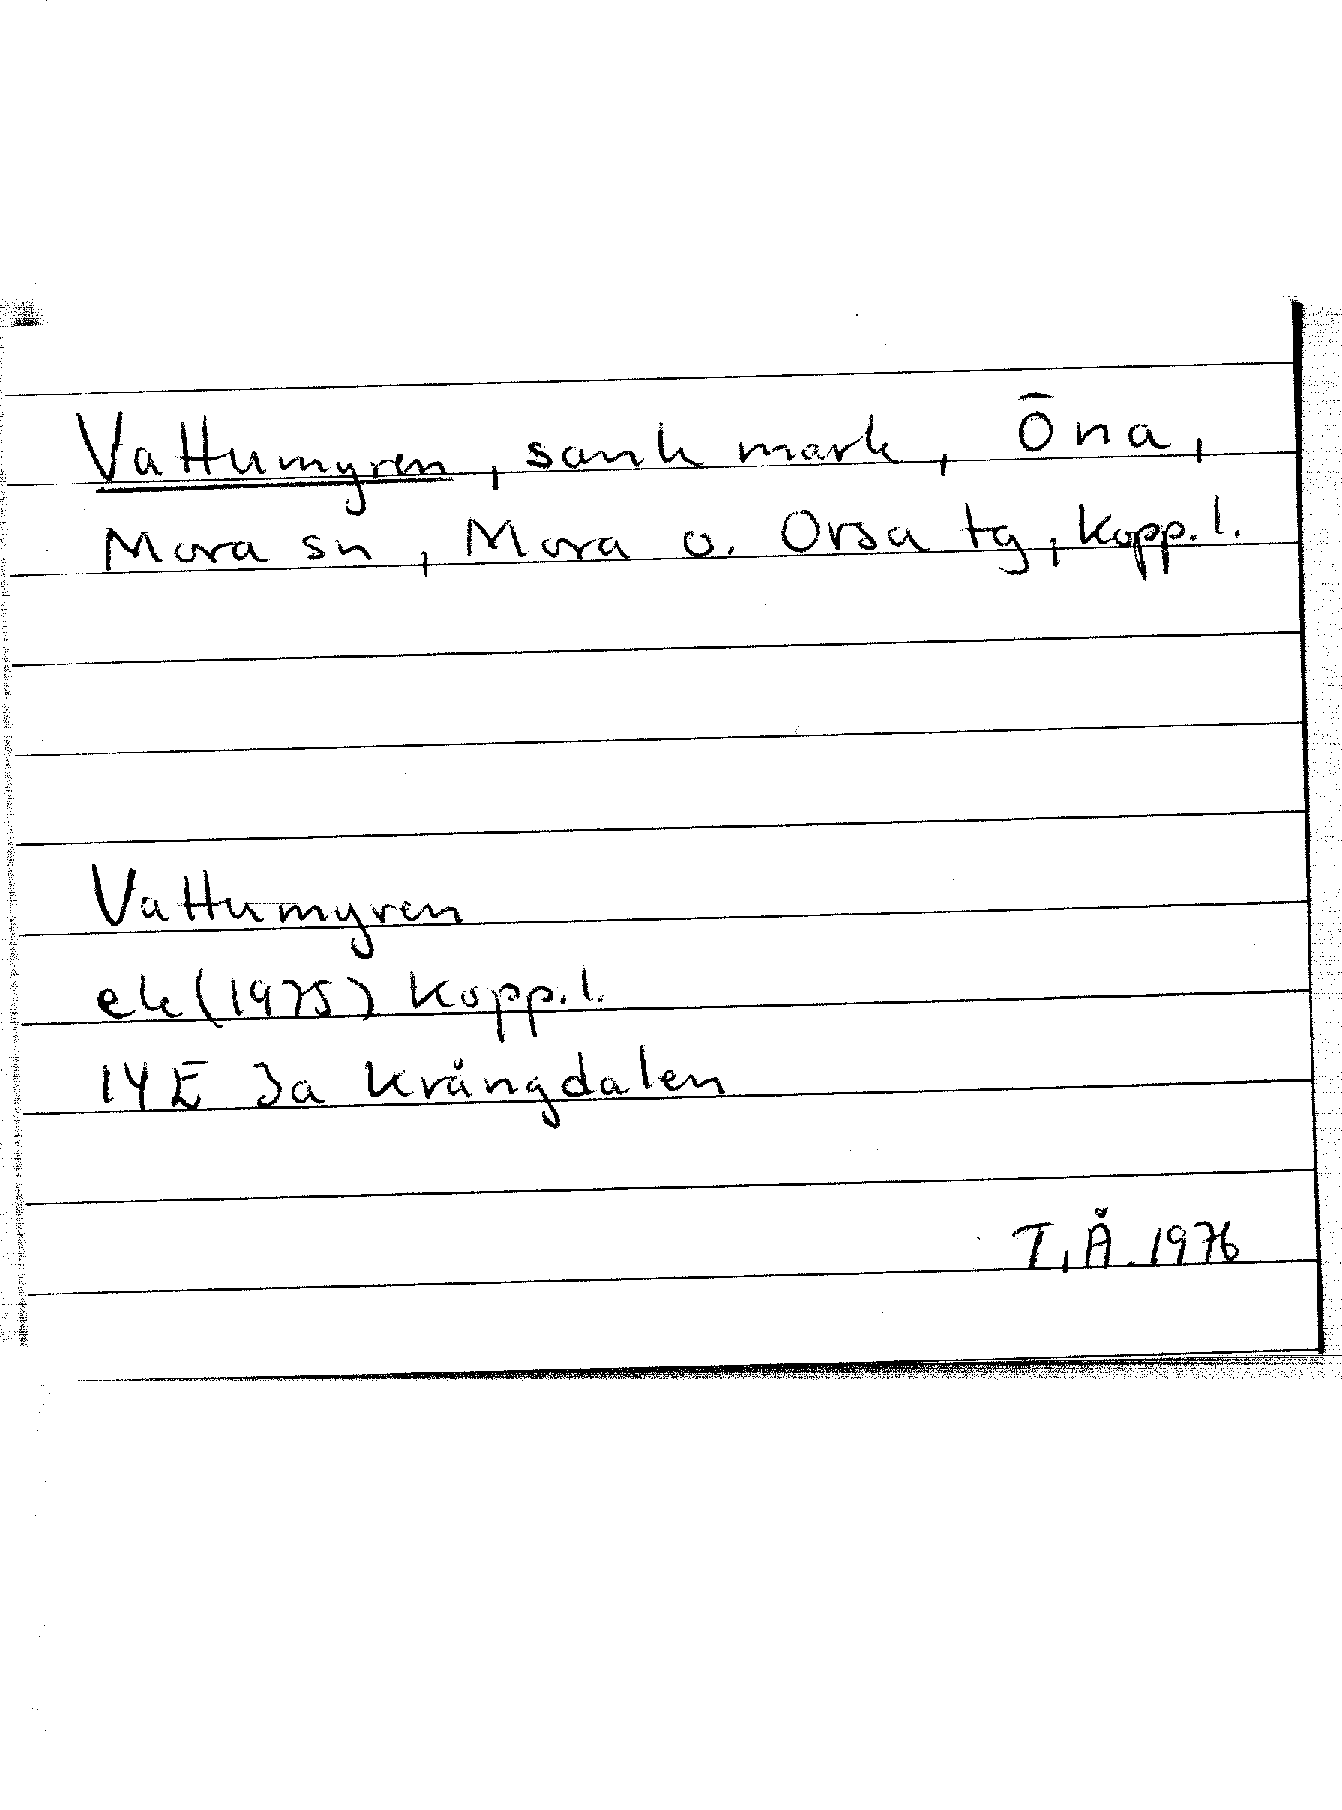 Vattumyren, sank mark, Öna,
Mora sn, Mora o. Orsa tg, Kopp. l.
Vattumyren
ek (1975) Kopp. l.
14 E 3a Krångdalen
T, Å. 1976